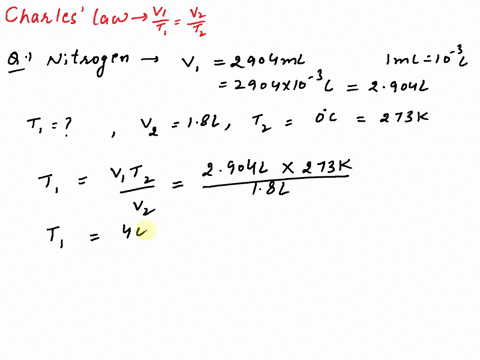 Charles' law → V₁/T₁ = V₂/T₂
Q.1 Nitrogen → V₁ = 2904mL 1mL = 10⁻³L
= 2904 × 10⁻³ L = 2.904L
T₁ = ? , V₂ = 1.8L, T₂ = 0°C = 273K
T₁ = V₁T₂/V₂ = 2.904L × 273K/1.8L
T₁ = 4